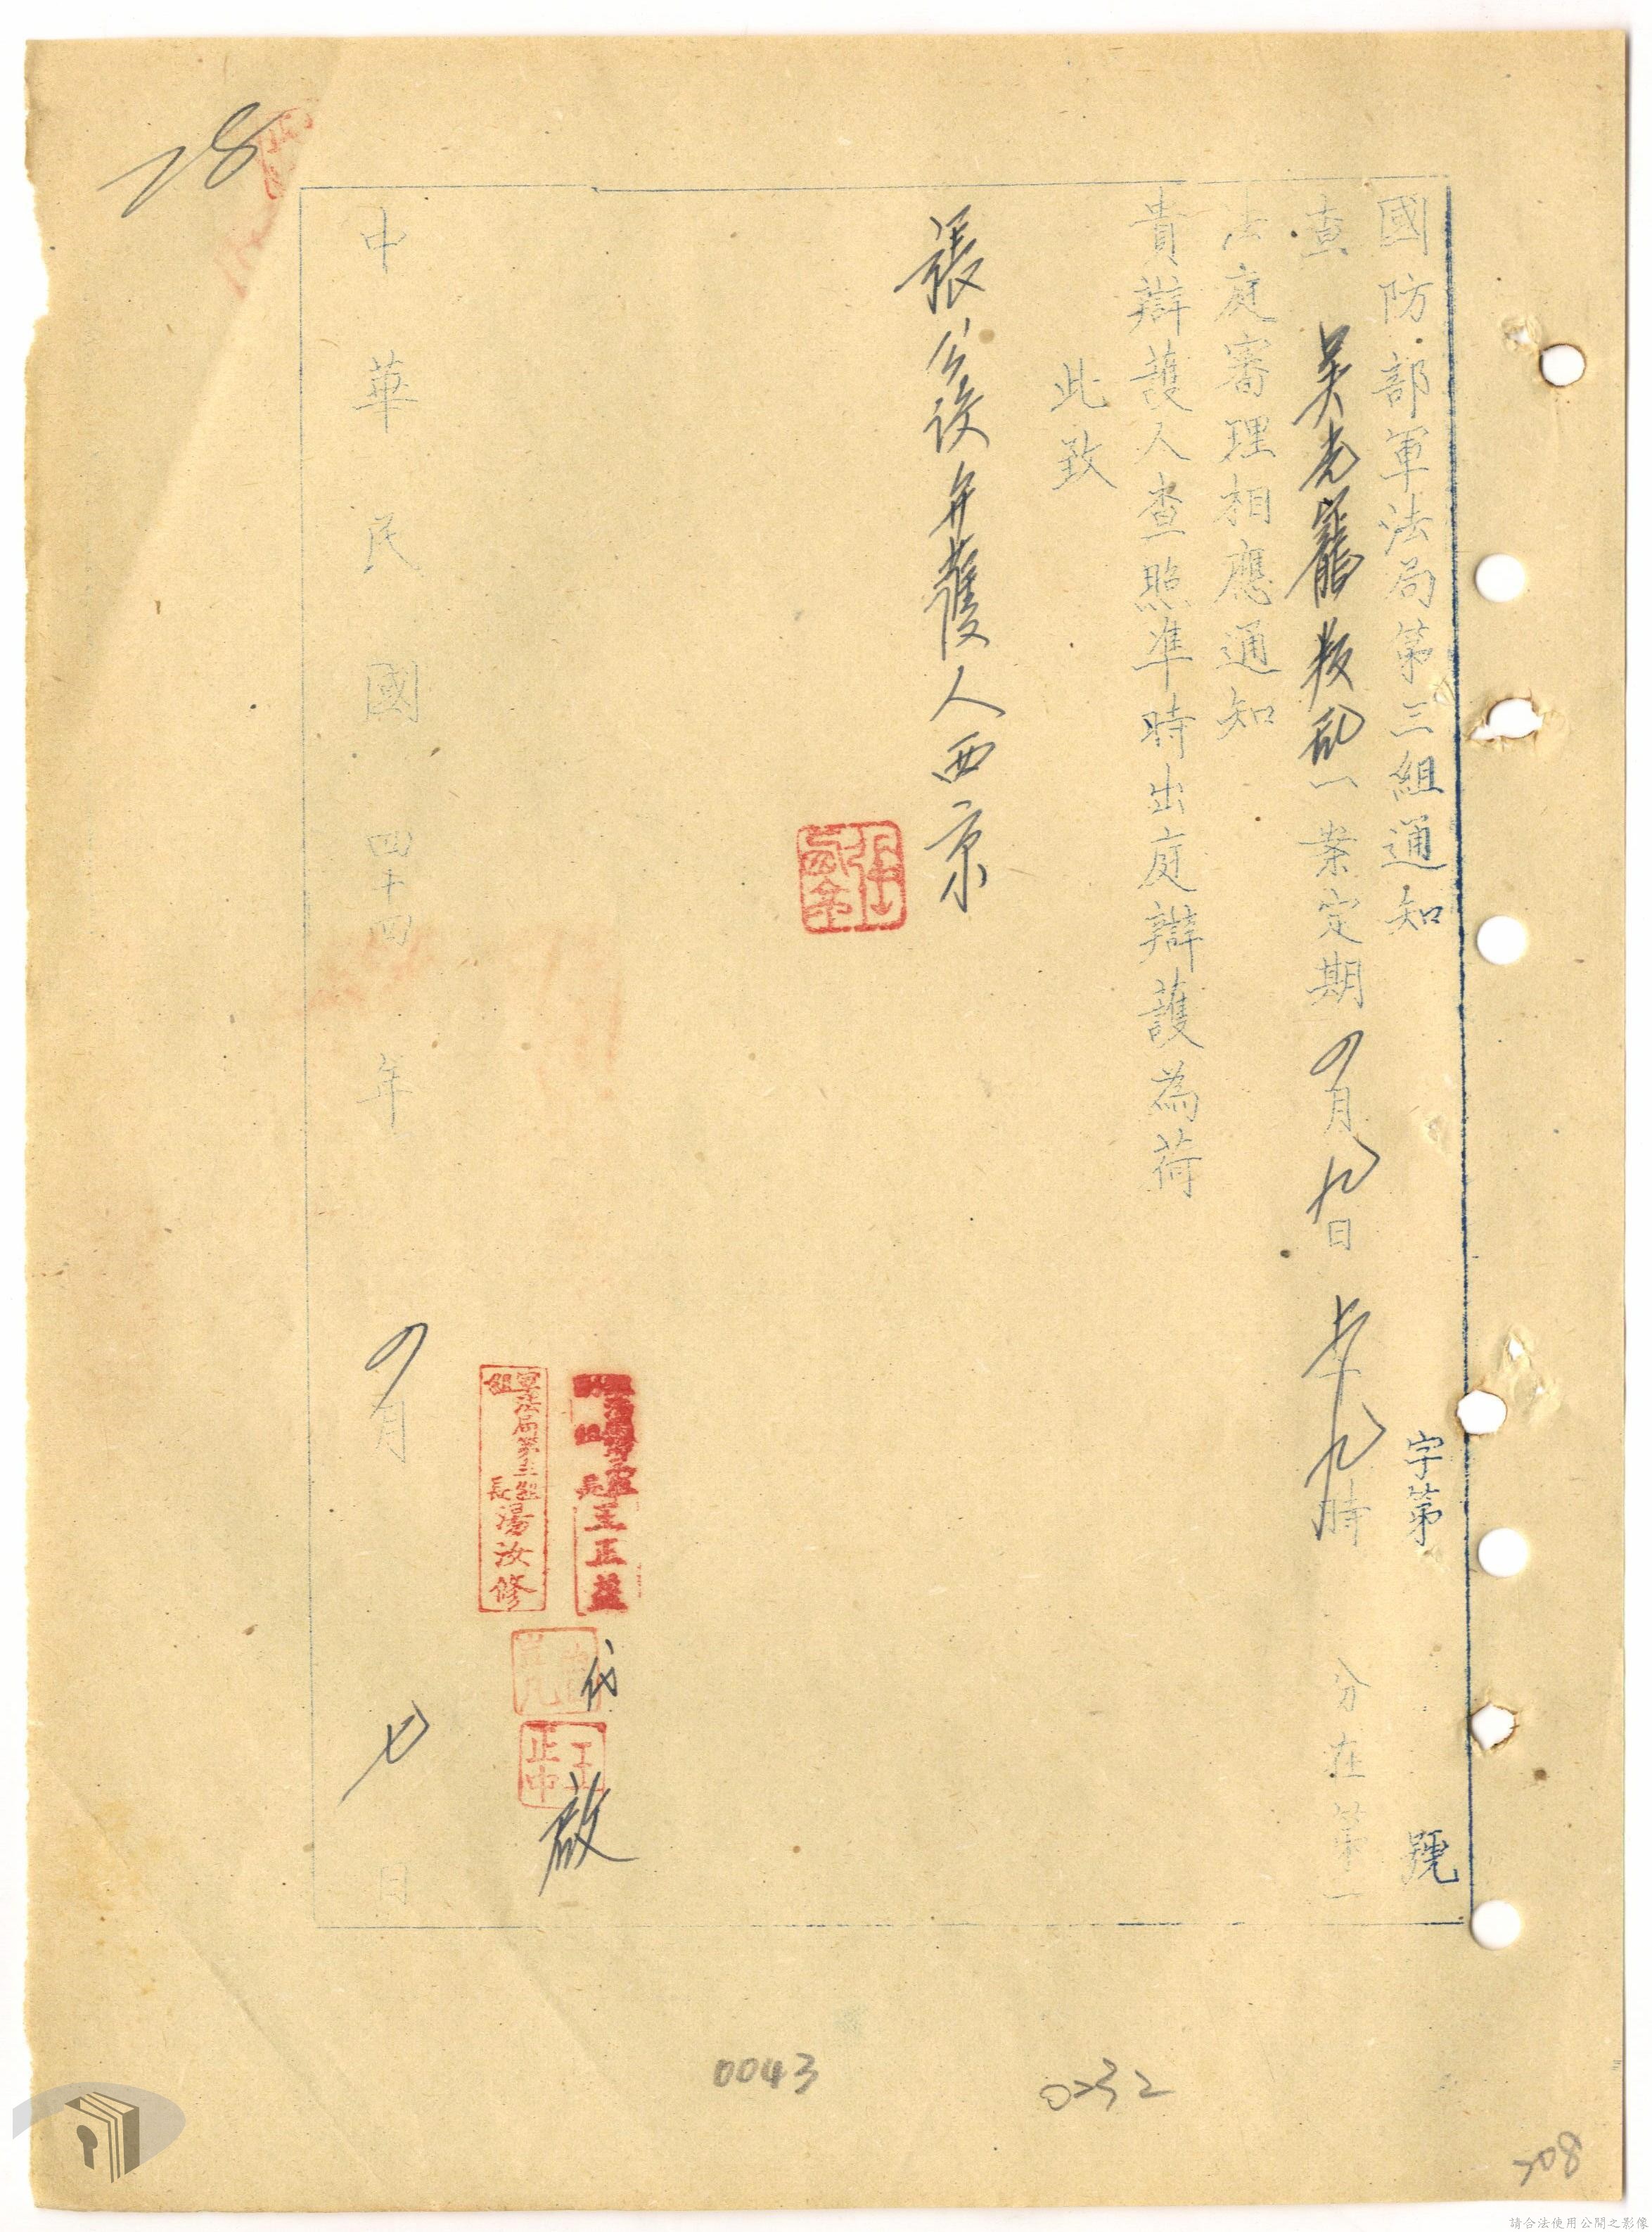 國防部軍法局第三組通知
字第 號
查 吳老龍 叛乱一案定期 四月九日 上午九時 分在第一
法庭審理相應通知
貴辯護人查照準時出庭辯護為荷
此致
張公設弁護人西京
軍法局第三組組長湯汝修
組長王正益
代
王正中
啟
中華民國四十四年四月七日
28
0043
0232
308
請合法使用公開之影像